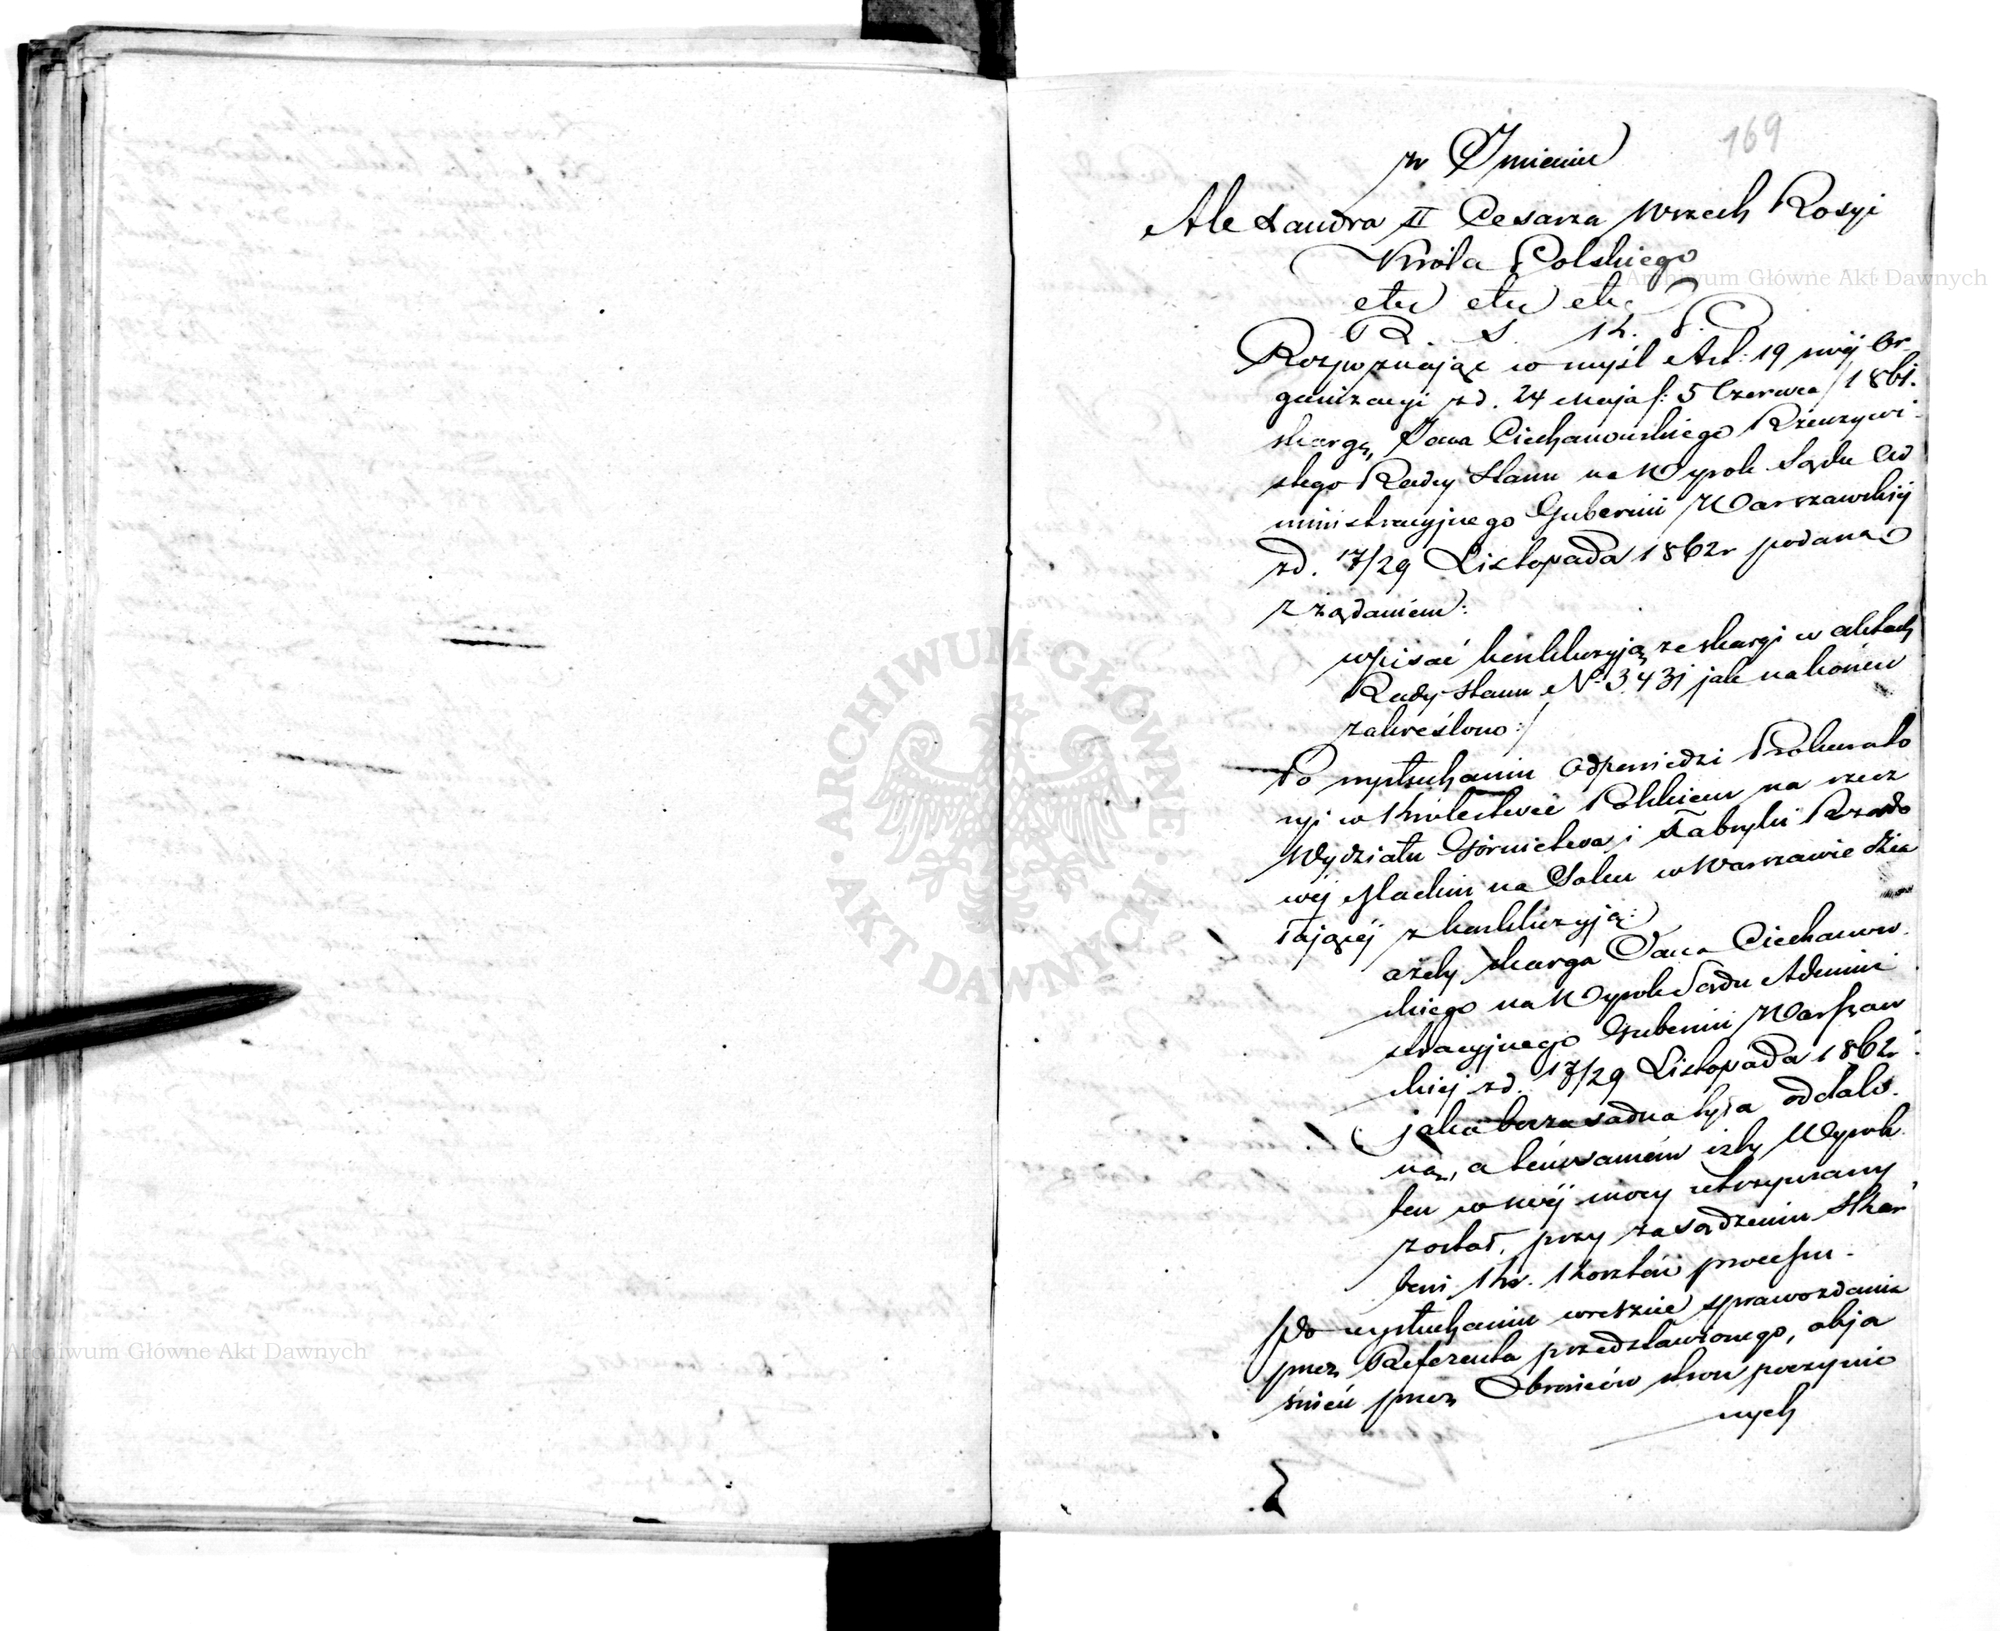 169
w Imieniu
Alexandra II Cesarza Wszech Rosyi
Króla Polskiego
etc etc etc
R. S. K. P.
Rozpoznając w myśl Art: 19 swéj Or-
ganizacyi z d. 24 Maja /: 5 Czerwca / 1861.
skargę, Jana Ciechanowskiego Rzeczywi-
stego Radcy Stanu na Wyrok Sądu Ad
ministracyjnego Gubernii Warszawskiéj
z d. 17/29 Listopada 1862 r podaną
z żądaniem:
wpisać konkluzyją ze skargi w aktach
Rady Stanu No 3,431 jak na końcu
zakreślono:/
Po wysłuchaniu Odpowiedzi Prokurato
ryi w Królestwie Polskiem na rzecz
Wydziału Górnictwa, i Fabryki Rządo
wéj Machin na Solcu w Warszawie dzia
łającéj z konkluzyją:
ażeby skarga Jana Ciechanow-
skiego na Wyrok Sądu Admini
stracyjnego Gubernii Warszaw
skiéj z d. 17/29 Listopada 1862 r
jako bezzasadna była oddalo-
ną, a temsamém iżby Wyrok
ten w swéj mocy utrzymany
został, przy zasądzeniu Skar
bowi Kr. Kosztów processu.
Po wysłuchaniu wreszcie sprawozdania
przez Referenta przedstawionego, obja
śnień przez Obrońców stron poczynio
nych
ARCHIWUM GŁÓWNE · AKT DAWNYCH ·
Archiwum Główne Akt Dawnych
Archiwum Główne Akt Dawnych